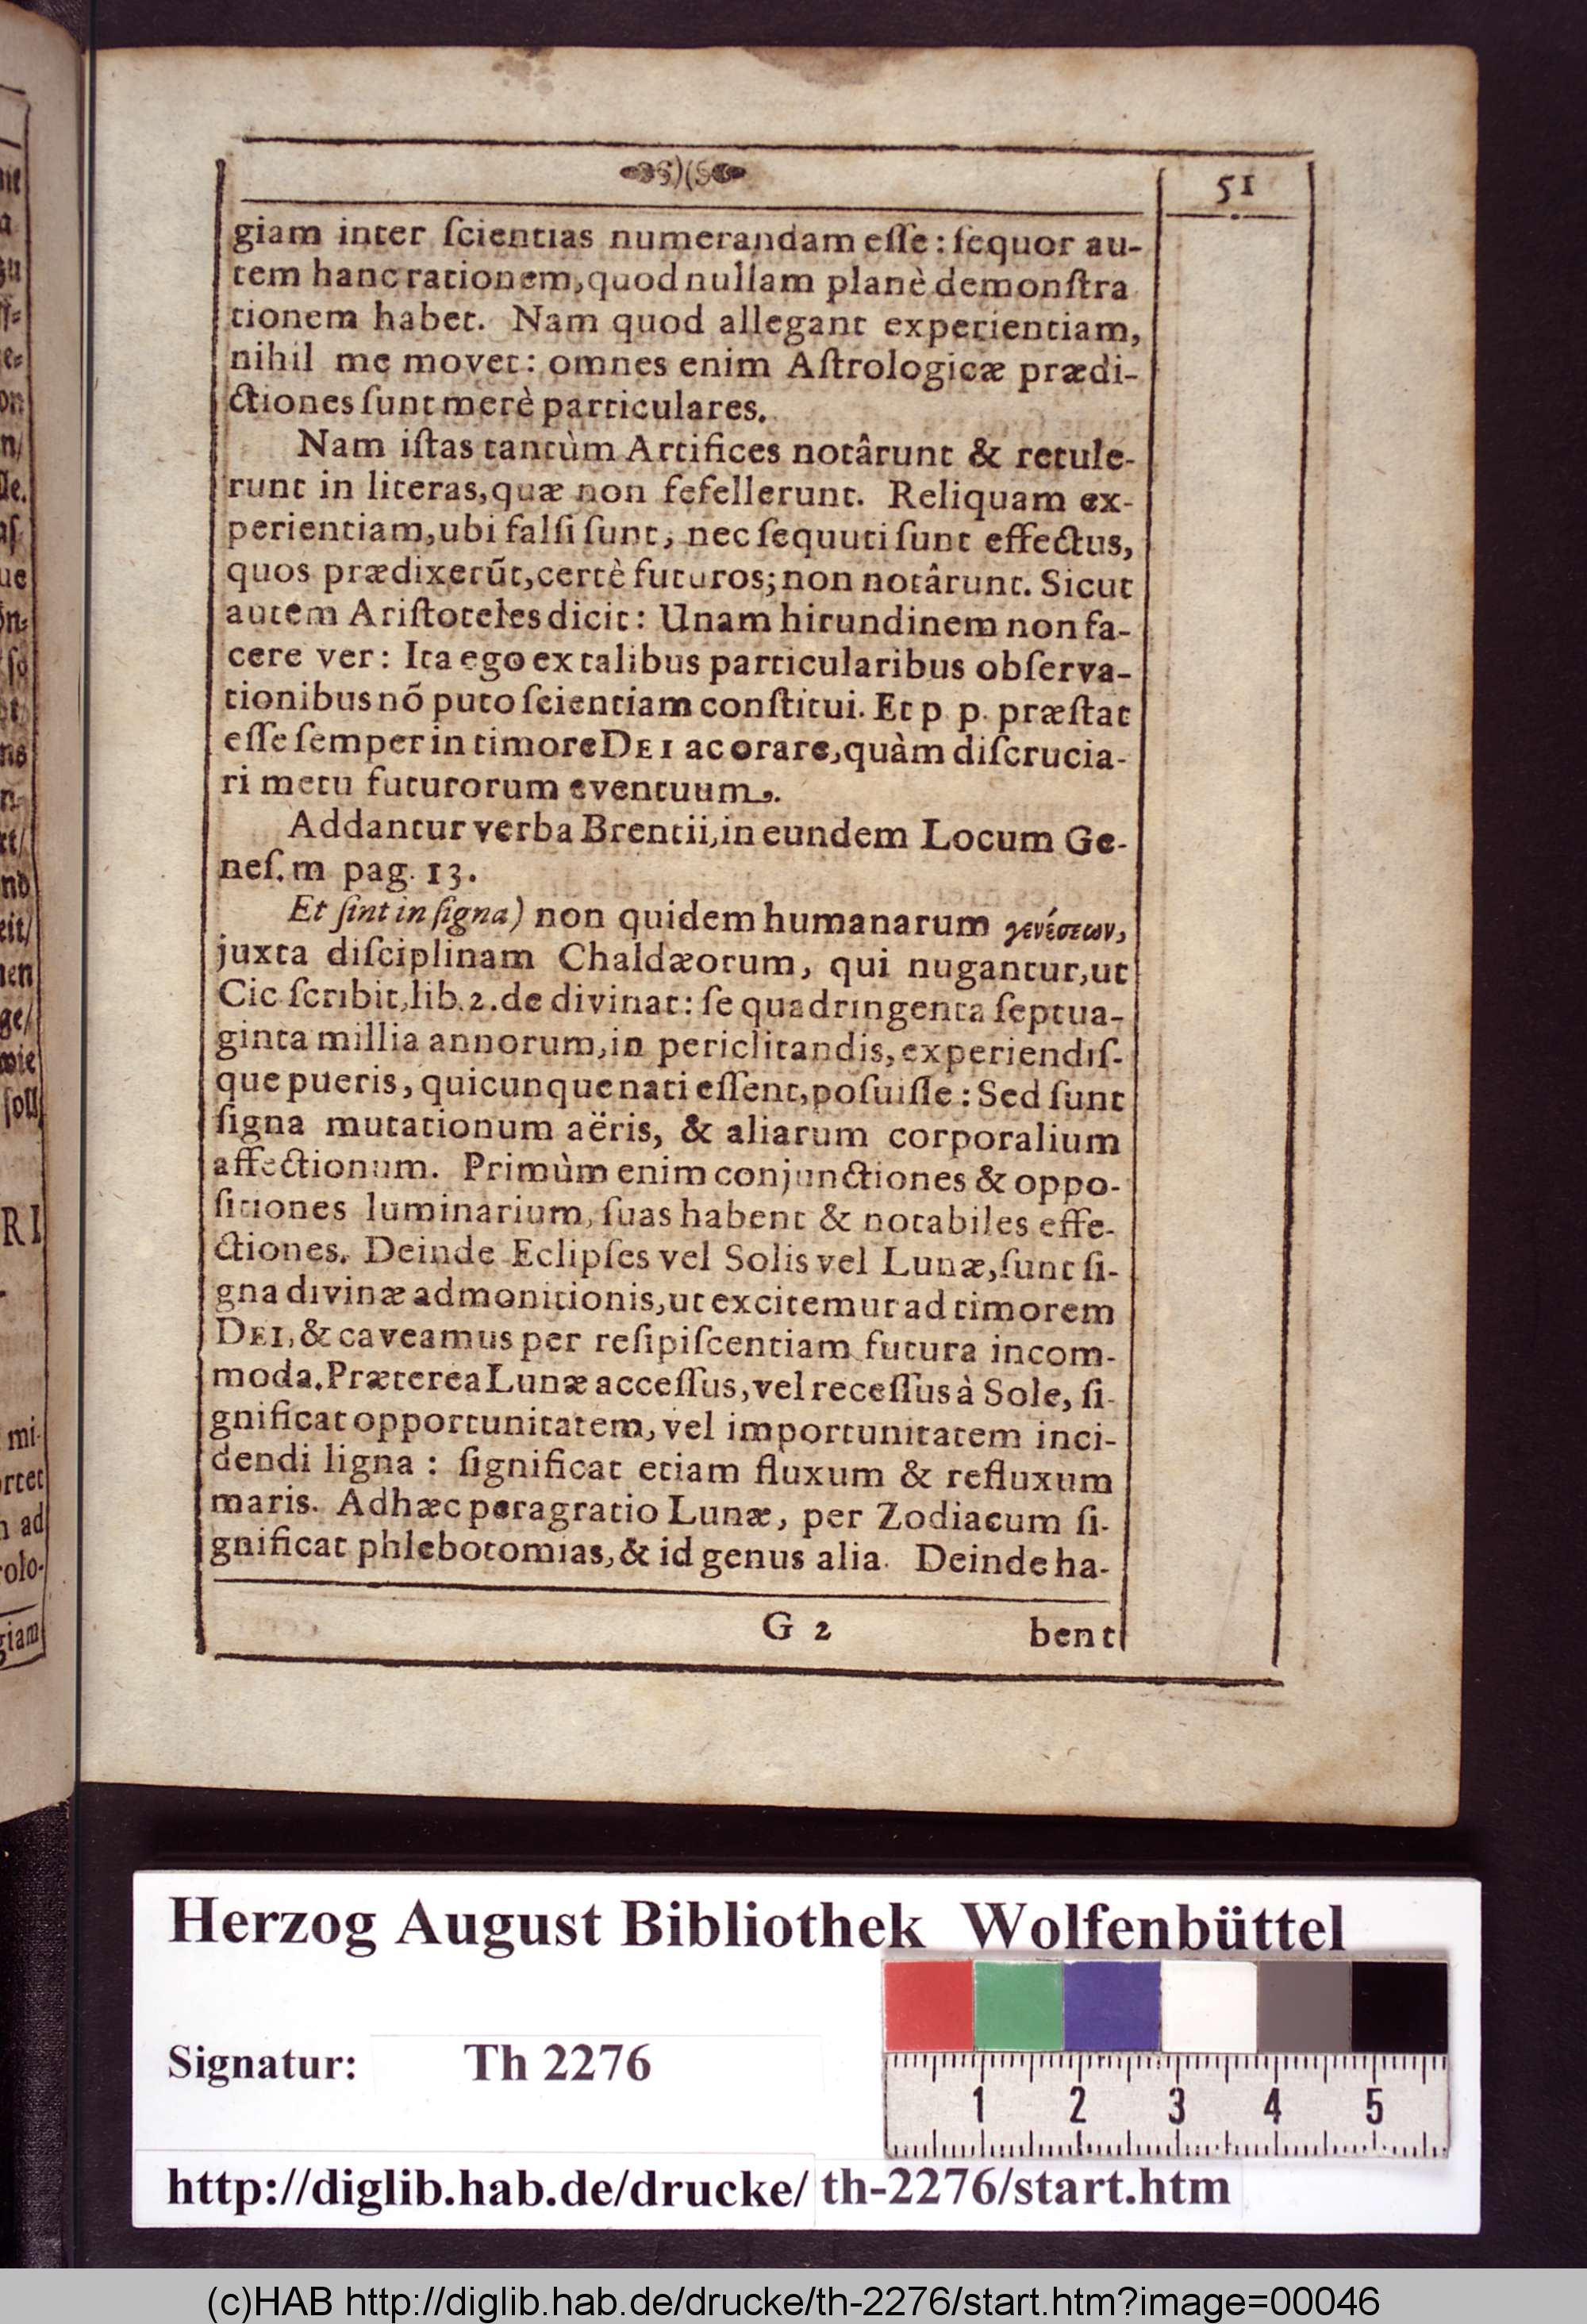 51
giam inter ſcientias numerandam eſſe: ſequor au-
tem hanc rationem, quod nullam planè demonſtra
tionem habet. Nam quod allegant experientiam,
nihil me movet: omnes enim Aſtrologicæ prædi-
ctiones ſunt merè particulares.
Nam iſtas tantùm Artifices notârunt & retule-
runt in literas, quæ non fefellerunt. Reliquam ex-
perientiam, ubi falſi ſunt, nec ſequuti ſunt effectus,
quos prædixerũt, certè futuros; non notârunt. Sicut
autem Ariſtoteles dicit: Unam hirundinem non fa-
cere ver: Ita ego ex talibus particularibus obſerva-
tionibus nõ puto ſcientiam conſtitui. Et p. p. præſtat
eſſe ſemper in timore DEI ac orare, quàm diſcrucia-
ri metu futurorum eventuum.
Addantur verba Brentii, in eundem Locum Ge-
neſ. m pag. 13.
Et ſint in ſigna) non quidem humanarum γενέσεων,
juxta diſciplinam Chaldæorum, qui nugantur, ut
Cic ſcribit, lib. 2. de divinat: ſe quadringenta ſeptua-
ginta millia annorum, in periclitandis, experiendiſ-
que pueris, quicunque nati eſſent, poſuiſſe: Sed ſunt
ſigna mutationum aëris, & aliarum corporalium
affectionum. Primùm enim conjunctiones & oppo-
ſitiones luminarium, ſuas habent & notabiles effe-
ctiones. Deinde Eclipſes vel Solis vel Lunæ, ſunt ſi-
gna divinæ admonitionis, ut excitemur ad timorem
DEI, & caveamus per reſipiſcentiam futura incom-
moda. Præterea Lunæ acceſſus, vel receſſus à Sole, ſi-
gnificat opportunitatem, vel importunitatem inci-
dendi ligna: ſignificat etiam fluxum & refluxum
maris. Ad hæc peragratio Lunæ, per Zodiacum ſi-
gnificat phlebotomias, & id genus alia. Deinde ha-
G 2 bent
Herzog August Bibliothek Wolfenbüttel
Signatur: Th 2276
1 2 3 4 5
http://diglib.hab.de/drucke/ th-2276/start.htm
(c)HAB http://diglib.hab.de/drucke/th-2276/start.htm?image=00046